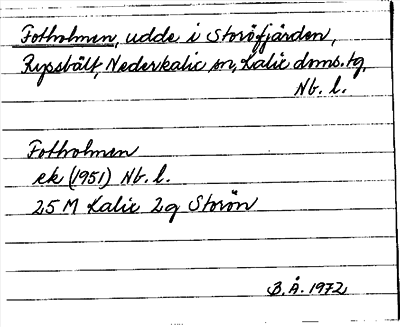 Fotholmen, udde i Storöfjärden,
Rypsbält, Nederkalix sn, Kalix doms. tg,
Nb. l.
Fotholmen
ek (1951) Nb. l.
25 M Kalix 2g Storön
B. Å. 1972